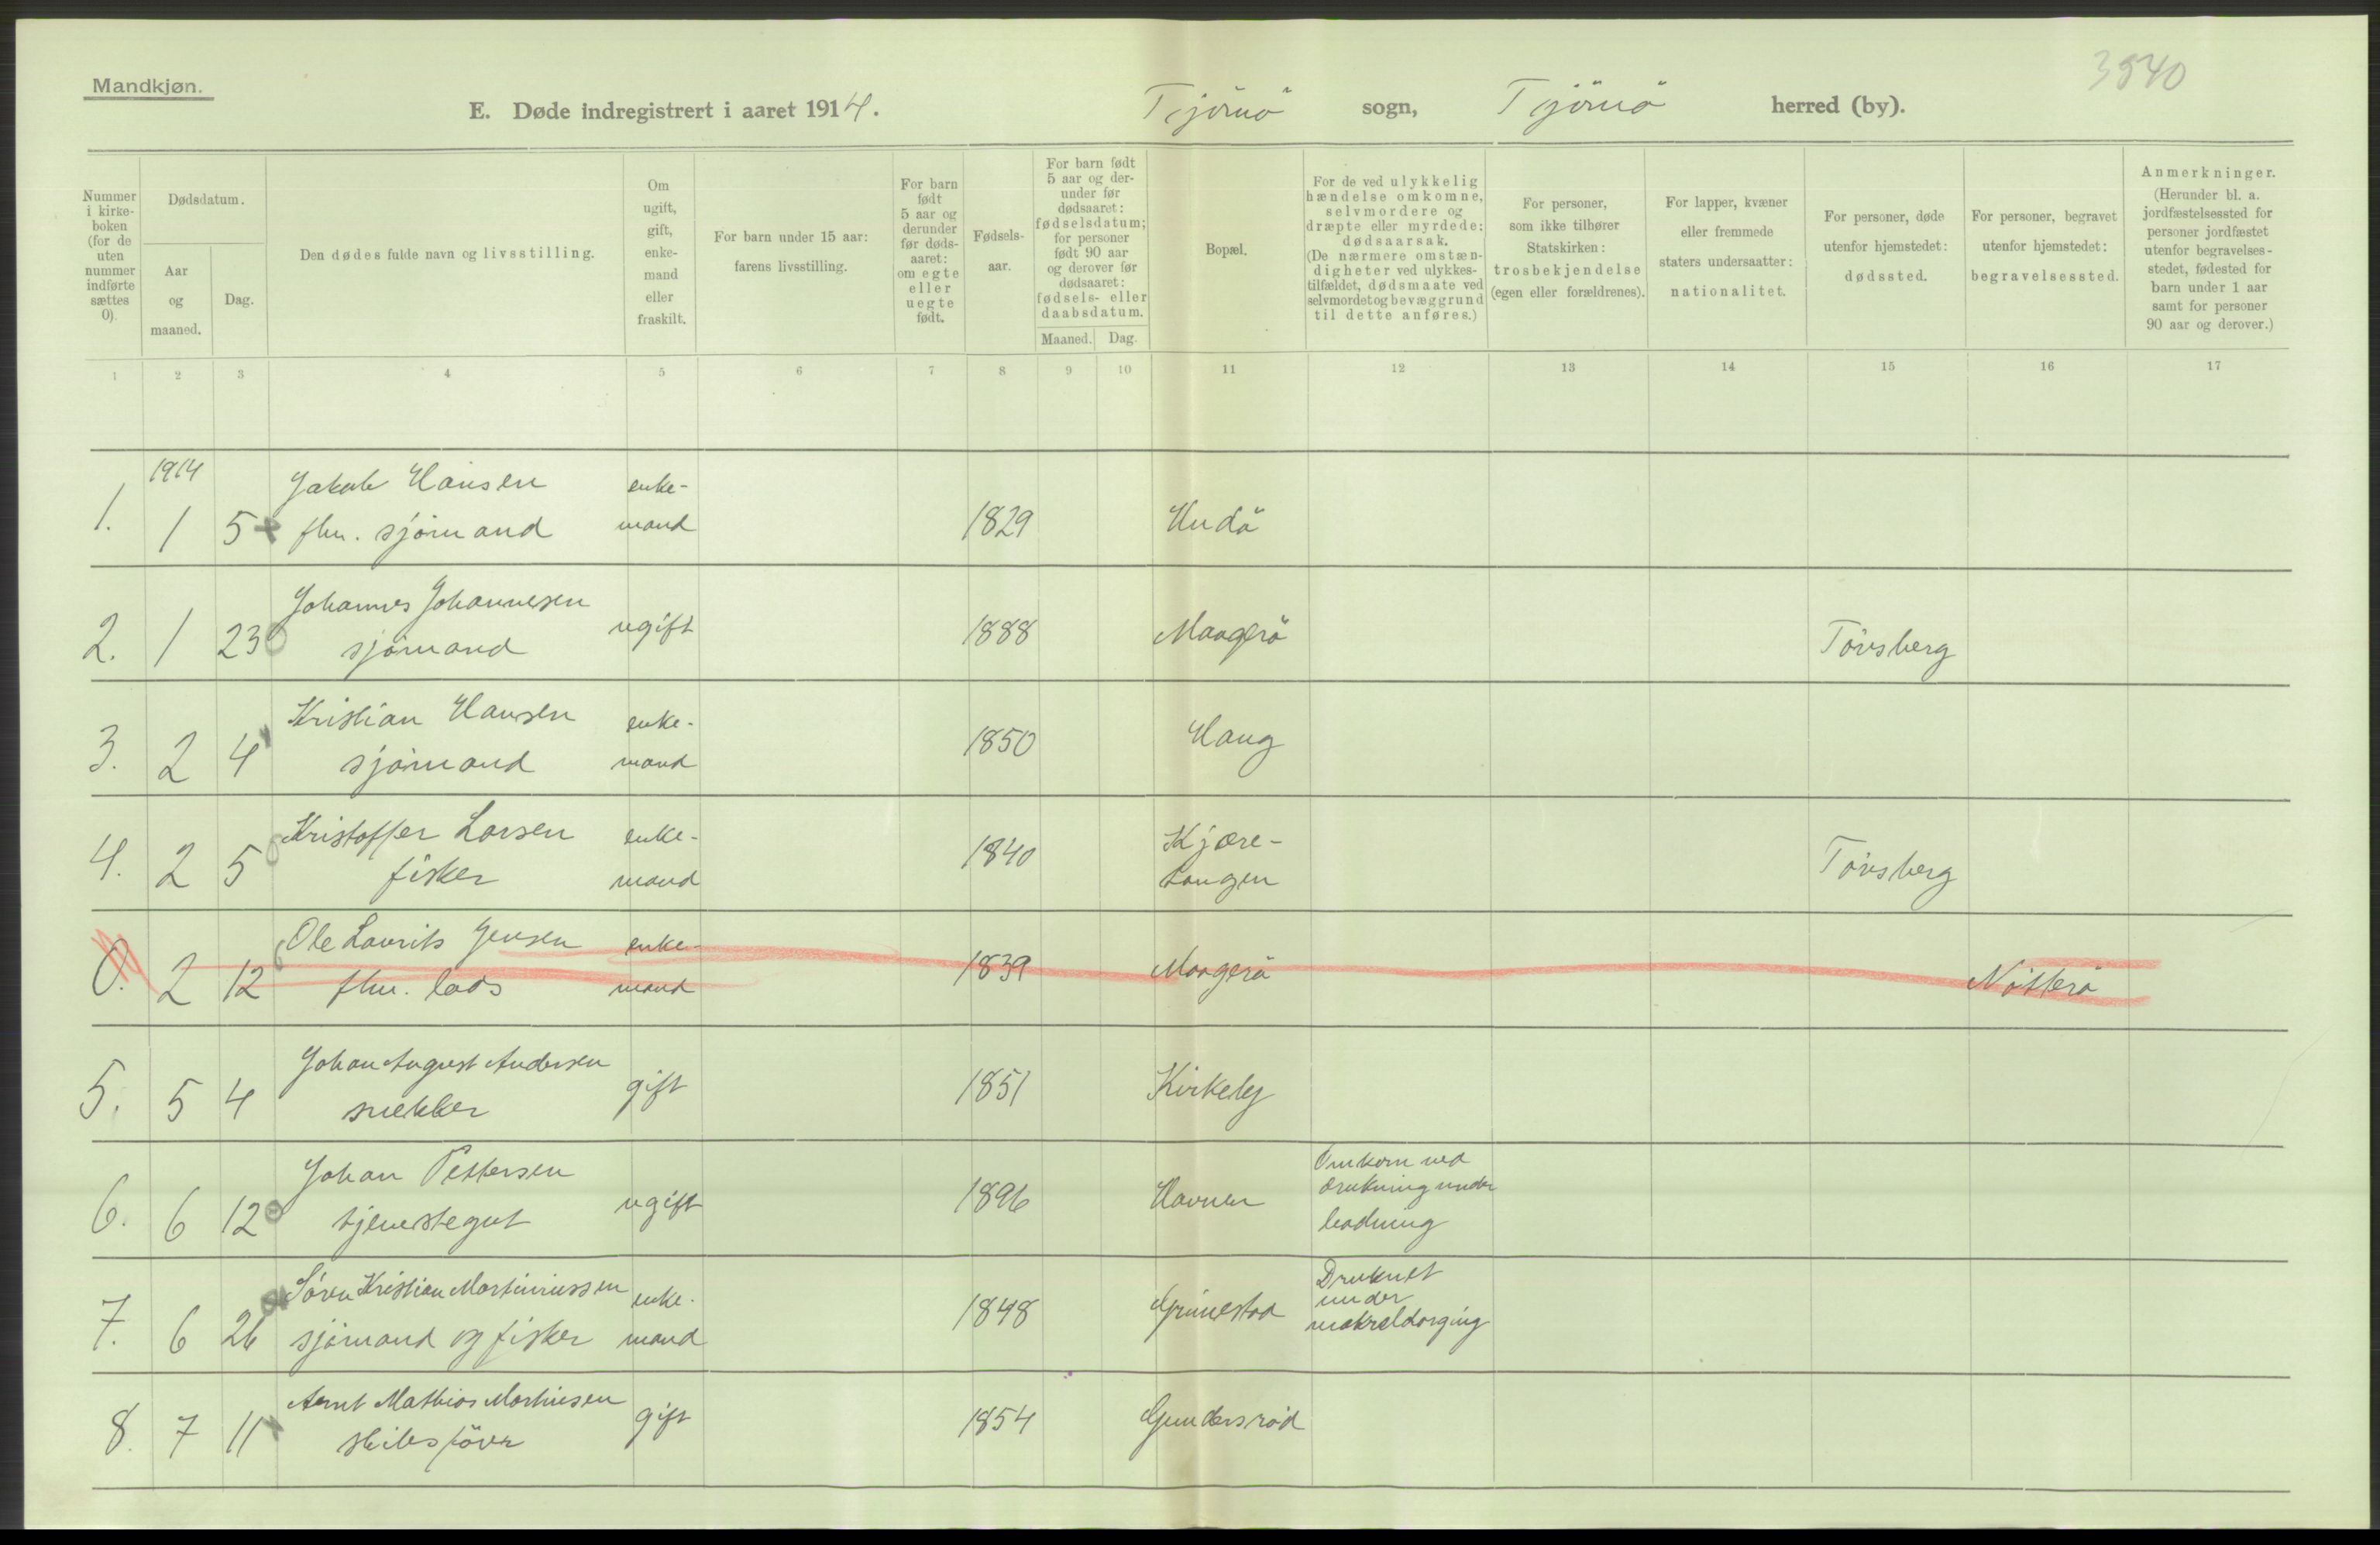 Mandkjøn.
3840
E. Døde indregistrert i aaret 1914. Tjömö sogn, Tjömö herred (by).
Nummer i kirke-boken (for de uten nummer indførte sættes 0).
Dødsdatum.
Aar og maaned.
Dag.
Den dødes fulde navn og livsstilling.
Om ugift, gift, enke-mand eller fraskilt.
For barn under 15 aar: farens livsstilling.
For barn født 5 aar og derunder før døds-aaret: om egte eller uegte født.
Fødsels-aar.
For barn født 5 aar og der-under før dødsaaret: fødselsdatum; for personer født 90 aar og derover før dødsaaret: fødsels- eller daabsdatum.
Maaned. Dag.
Bopæl.
For de ved ulykkelig hændelse omkomne, selvmordere og dræpte eller myrdede: dødsaarsak. (De nærmere omstæn-digheter ved ulykkes-tilfældet, dødsmaate ved selvmordet og bevæggrund til dette anføres.)
For personer, som ikke tilhører Statskirken: trosbekjendelse (egen eller forældrenes).
For lapper, kvæner eller fremmede staters undersaatter: nationalitet.
For personer, døde utenfor hjemstedet: dødssted.
For personer, begravet utenfor hjemstedet: begravelsessted.
Anmerkninger. (Herunder bl. a. jordfæstelsessted for personer jordfæstet utenfor begravelses-stedet, fødested for barn under 1 aar samt for personer 90 aar og derover.)
1 2 3 4 5 6 7 8 9 10 11 12 13 14 15 16 17
1914
1. 1 5 Jakob Hansen enke-
fhv. sjömand mand 1829 Hudö
2. 1 23 Johannes Johannesen
sjömand ugift 1888 Maagerö Tönsberg
3. 2 4 Kristian Hansen enke-
sjömand mand 1850 Haug
4. 2 5 Kristoffer Larsen enke-
fisker mand 1840 Kjære-
tangen Tönsberg
0. 2 12 Ole Laurits Jensen enke-
fhv. lods mand 1839 Maagerö Nötterö
5. 5 4 Johan August Andersen
snekker gift 1851 Kirkeby
6. 6 12 Johan Pettersen
tjenestegut ugift 1896 Havnen
Omkom ved
drukning under
badning
7. 6 26 Sören Kristian Martiniussen enke-
sjömand og fisker mand 1848 Grimestad
Druknet
under
makreldorging
8. 7 11 Arnt Mathias Martinsen
skibsförer gift 1854 Gundersröd